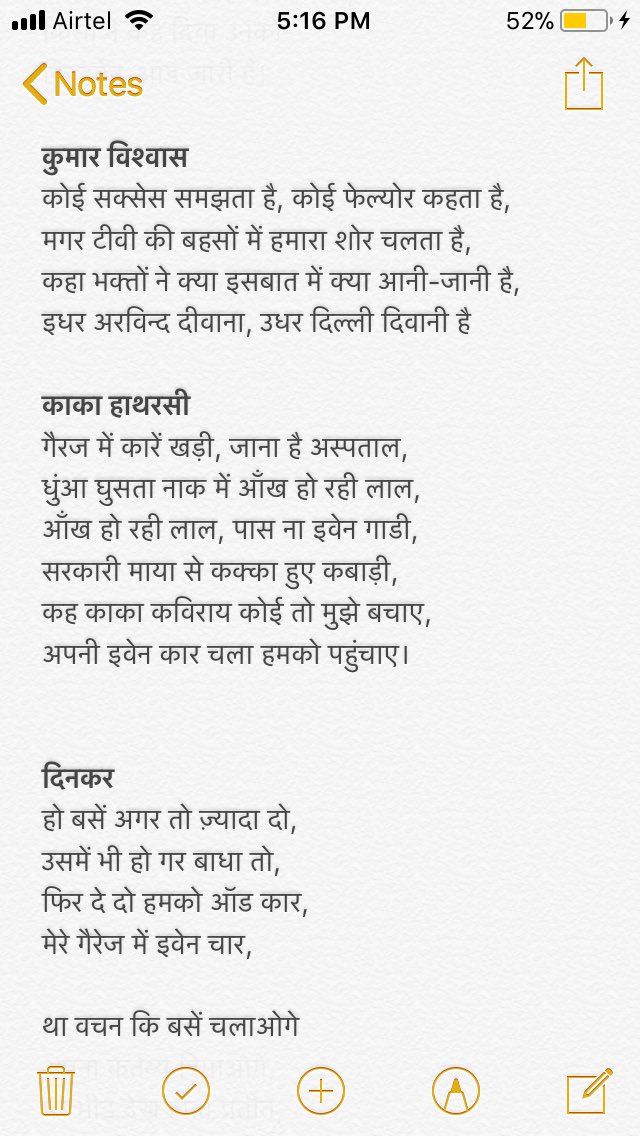 Airtel 5:16 PM 52%
Notes
कुमार विश्वास
कोई सक्सेस समझता है, कोई फेल्योर कहता है,
मगर टीवी की बहसों में हमारा शोर चलता है,
कहा भक्तों ने क्या इसबात में क्या आनी-जानी है,
इधर अरविन्द दीवाना, उधर दिल्ली दिवानी है
काका हाथरसी
गैरज में कारें खड़ी, जाना है अस्पताल,
धुंआ घुसता नाक में आँख हो रही लाल,
आँख हो रही लाल, पास ना इवेन गाडी,
सरकारी माया से कक्का हुए कबाड़ी,
कह काका कविराय कोई तो मुझे बचाए,
अपनी इवेन कार चला हमको पहुंचाए।
दिनकर
हो बसें अगर तो ज़्यादा दो,
उसमें भी हो गर बाधा तो,
फिर दे दो हमको ऑड कार,
मेरे गैरेज में इवेन चार,
था वचन कि बसें चलाओगे